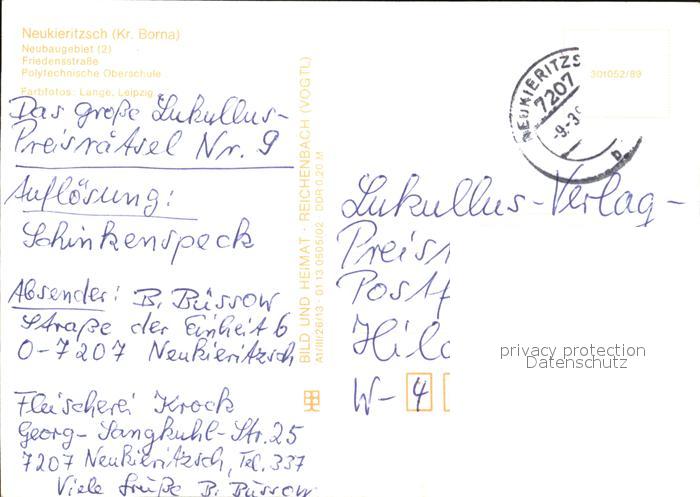 Neukieritzsch (Kr. Borna)
Neubaugebiet (2)
Friedensstraße
Polytechnische Oberschule
Farbfotos: Lange, Leipzig
Das große Lukullus-
Preisrätsel Nr. 9
Auflösung:
Schinkenspeck
Absender: B. Büssow
Straße der Einheit 6
O-7207 Neukieritzsch
Fleischerei Krock
Georg-Sangkuhl-Str. 25
7207 Neukieritzsch, Tel. 337
Viele Grüße B. Büssow
BILD UND HEIMAT · REICHENBACH (VOGTL)
A1/III/26/13 · 01 13 0505/02 · DDR 0,20 M
NEUKIERITZS
7207
-9.-3
b
301052/89
Lukullus-Verlag-
Preis
Post
Hild
W-4
privacy protection
Datenschutz